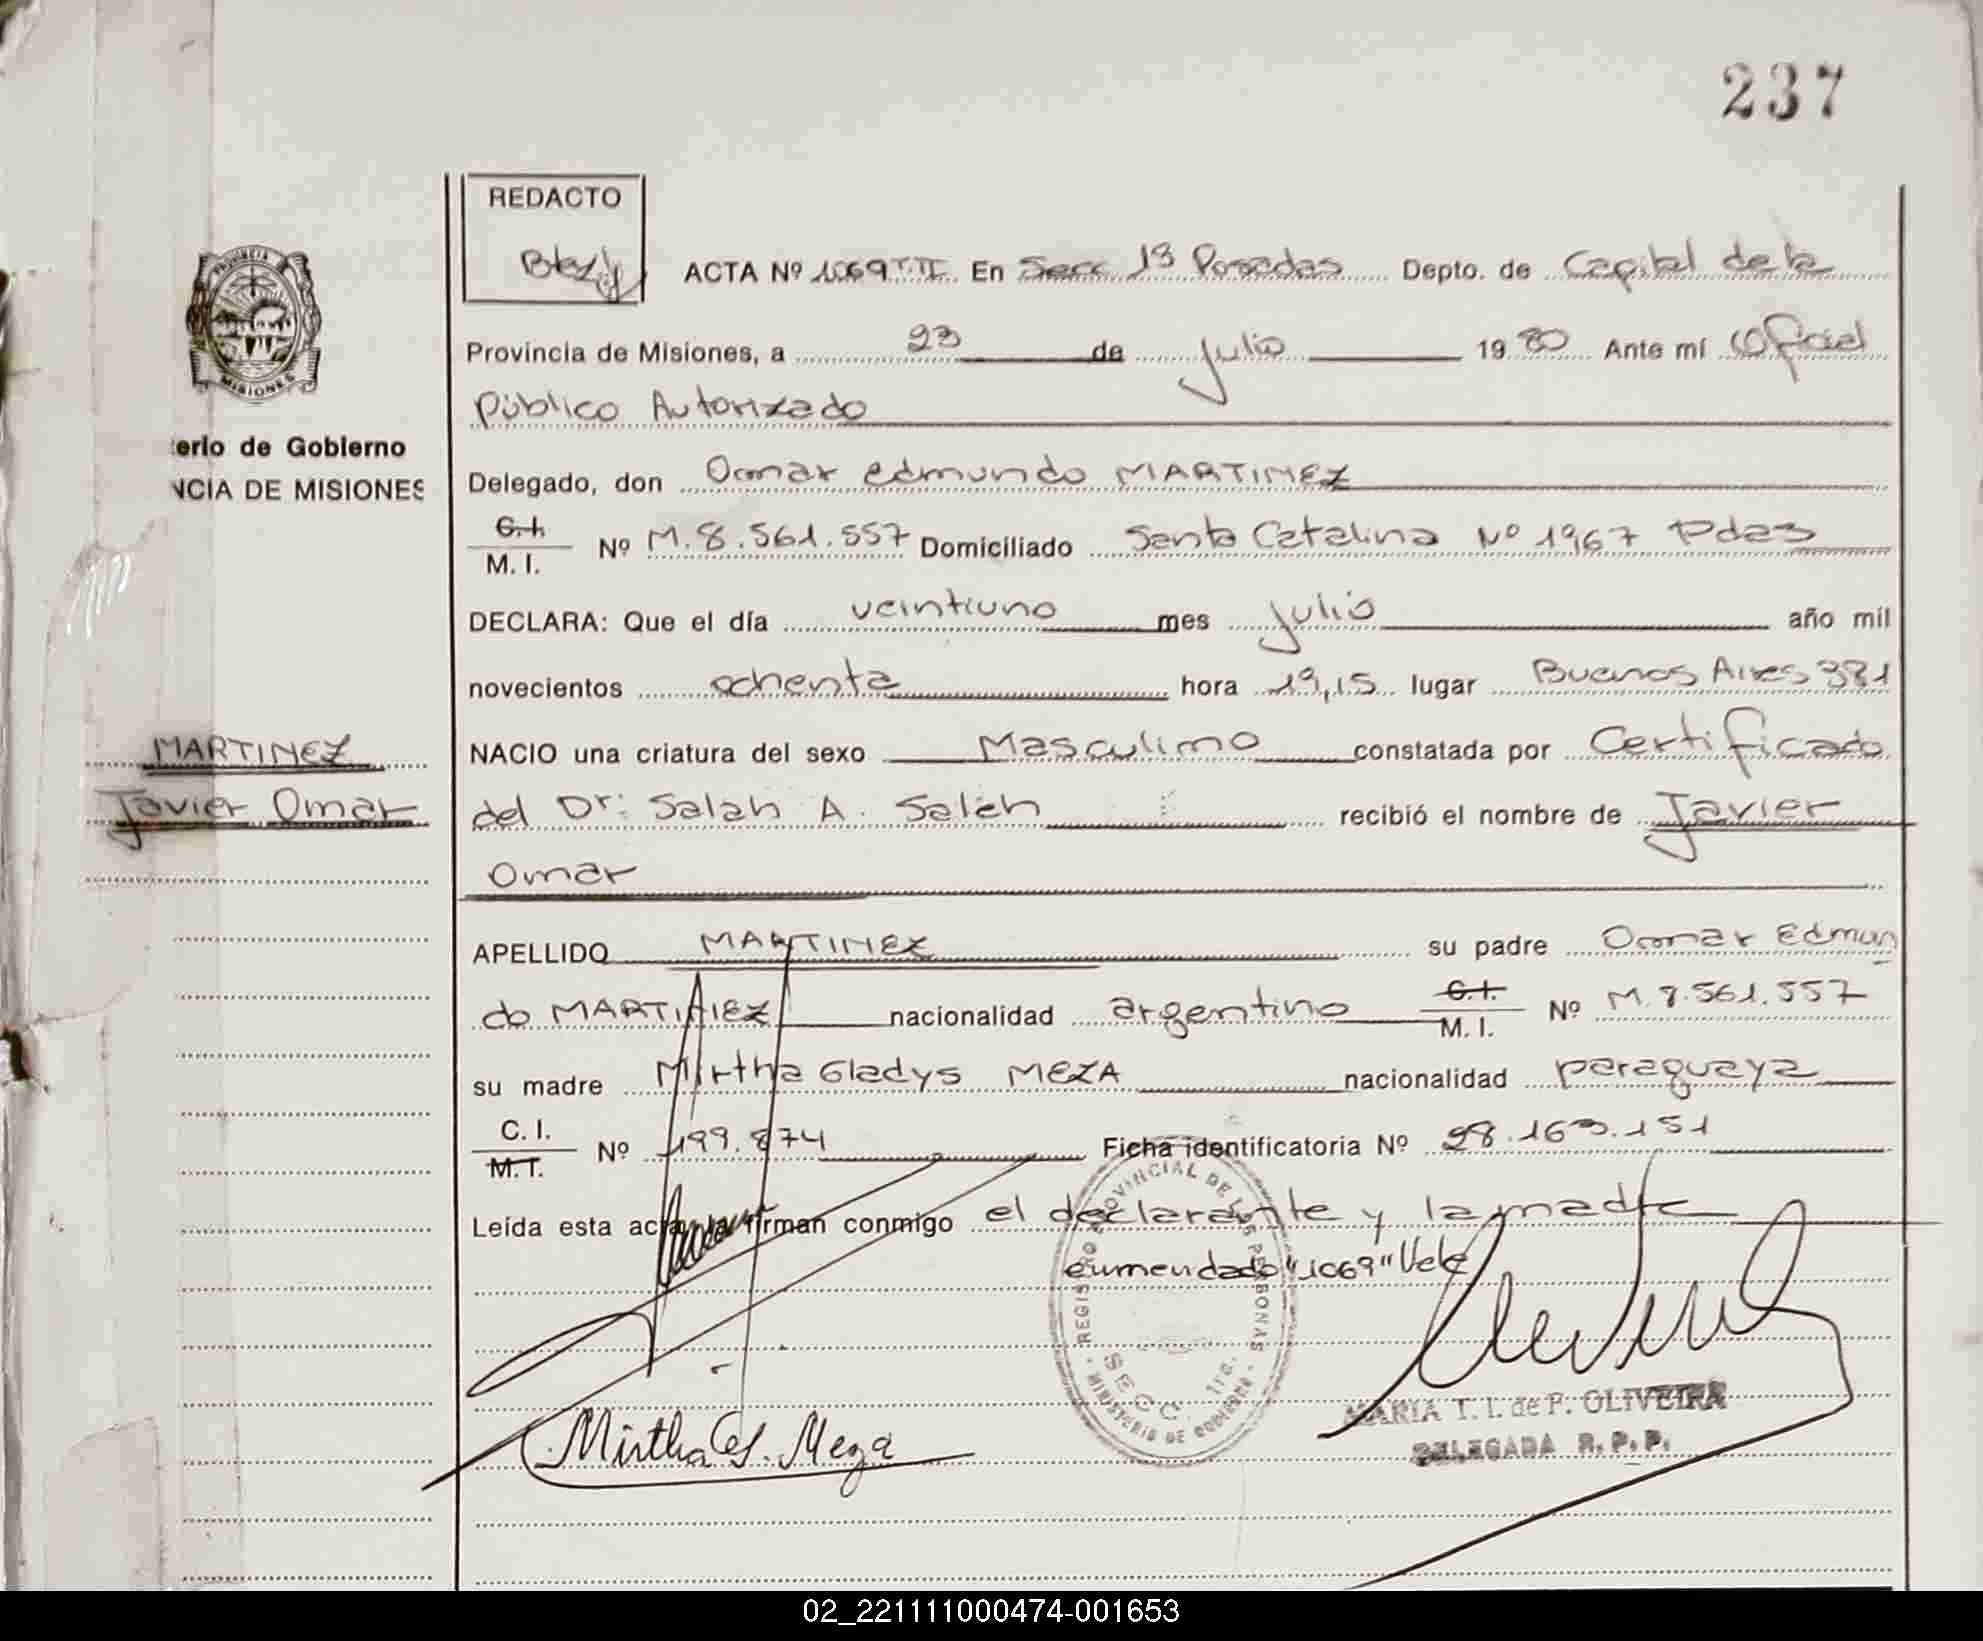 237
REDACTO
ACTA Nº 1069 T. II. En Secc 1ª Posadas Depto. de Capital de la
Provincia de Misiones, a 23 de Julio 1980 Ante mí Oficial
Público Autorizado
erio de Gobierno
NCIA DE MISIONES
Delegado, don Omar Edmundo MARTINEZ
C.I.
M. I. Nº M.8.561.557 Domiciliado Santa Catalina Nº 1967 Pdas
DECLARA: Que el día veintiuno mes Julio año mil
novecientos ochenta hora 19,15 lugar Buenos Aires 381
MARTINEZ
NACIO una criatura del sexo Masculino constatada por Certificado
Javier Omar
del Dr: Salah A. Saleh recibió el nombre de Javier
Omar
APELLIDO MARTINEZ su padre Omar Edmun
do MARTINEZ nacionalidad argentino C.I.
M. I. Nº M.8.561.557
su madre Mirtha Gladys MEZA nacionalidad paraguaya
C. I.
M.I. Nº 199.874 Ficha identificatoria Nº 28.163.151
Leída esta acta la firman conmigo el declarante y la madre
enmendado "1069" Vale
REGISTRO PROVINCIAL DE LAS PERSONAS
SECC. 1ra.
MINISTERIO DE GOBIERNO
MARIA T. I. de P. OLIVEIRA
DELEGADA R. P. P.
Mirtha G. Meza
PROVINCIA
MISIONES
02_221111000474-001653